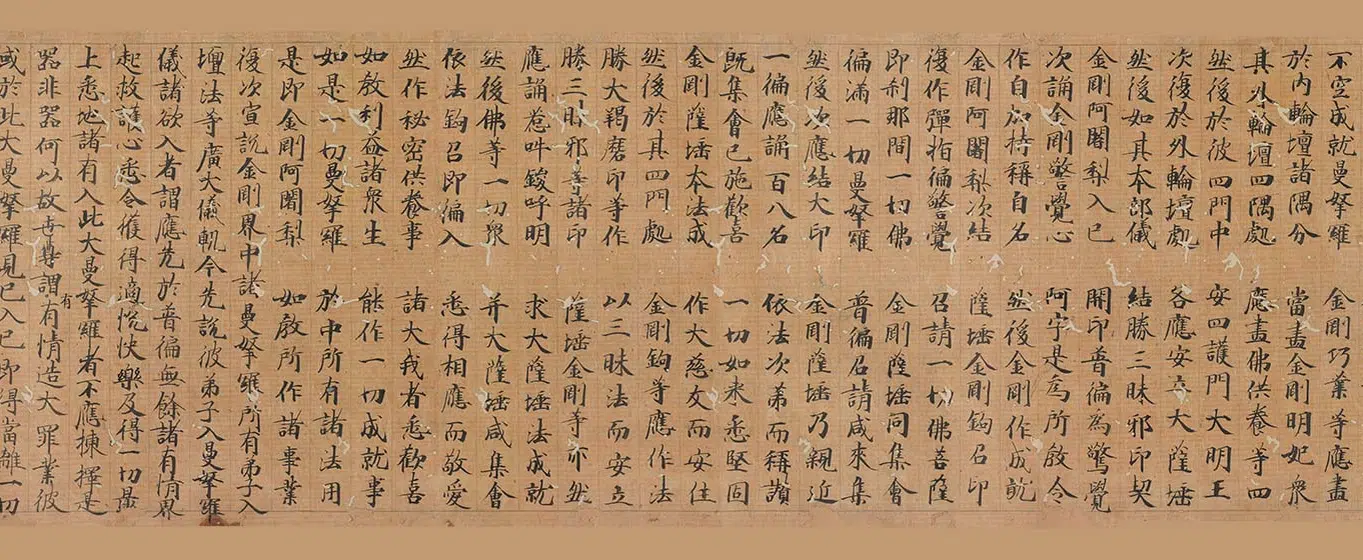 不空成就曼拏羅　金剛巧業等應畫
於內輪壇諸隅分　當畫金剛明妃眾
其外輪壇四隅處　應畫佛供養等四
然後於彼四門中　安四護門大明王
次復於外輪壇處　各應安立大薩埵
然後如其本部儀　結勝三昧邪印契
金剛阿闍梨入已　開印普徧為驚覺
次誦金剛警覺心　阿字是為所啟令
作自加持稱自名　然後金剛作成就
金剛阿闍梨次結　薩埵金剛鉤召印
復作彈指徧警覺　召請一切佛菩薩
即剎那間一切佛　金剛薩埵同集會
徧滿一切曼拏羅　普徧召請咸來集
然後次應結大印　金剛薩埵乃親近
一徧應誦百八名　依法次弟而稱讚
既集會已施歡喜　一切如来悉堅固
金剛薩埵本法成　作大慈父而安住
然後於其四門處　金剛鉤等應作法
勝大羯磨印等作　以三昧法而安立
勝三昧邪等諸印　薩埵金剛等亦然
應誦惹吽鍐呼明　求大薩埵法成就
然後佛等一切眾　并大薩埵咸集會
依法鉤召即徧入　悉得相應而敬愛
然作秘密供養事　諸大我者悉歡喜
如教利益諸眾生　能作一切成就事
如是一切曼拏羅　於中所有諸法用
是即金剛阿闍梨　如啟所作諸事業
復次宣說金剛界中諸曼拏羅所有弟子入
壇法等廣大儀軌今先說彼弟子入曼拏羅
儀諸欲入者謂應先於普徧無餘諸有情界
起救護心悉令獲得適悅快樂及得一切最
上悉地諸有入此大曼拏羅者不應揀擇是
器非器何以故世尊謂有有情造大罪業彼
或於此大曼拏羅見已入已即得當離一切